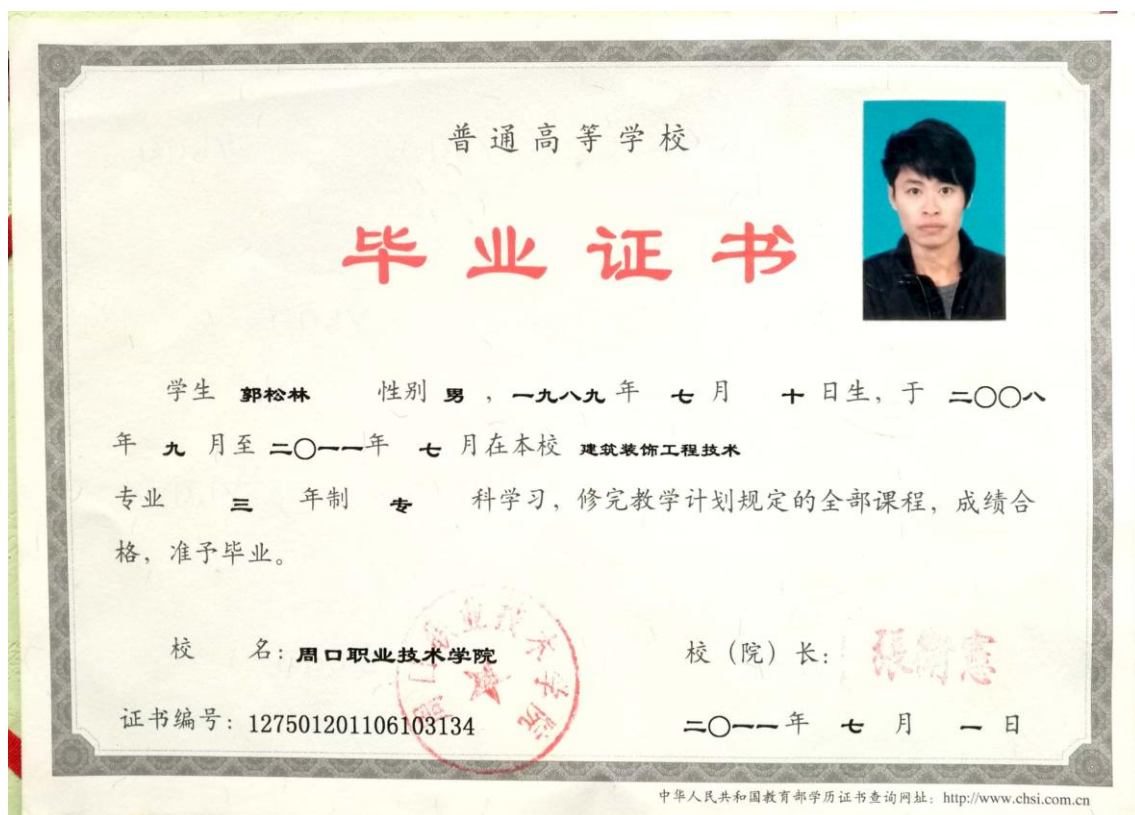 普通高等学校
毕业证书
学生 郭松林 性别 男 ，一九八九 年 七 月 十 日生，于 二〇〇八
年 九 月至 二〇一一年 七 月在本校 建筑装饰工程技术
专业 三 年制 专 科学习，修完教学计划规定的全部课程，成绩合
格，准予毕业。
校 名：周口职业技术学院
周口职业技术学院
校（院）长：
证书编号：127501201106103134
二〇一一年 七 月 一 日
中华人民共和国教育部学历证书查询网址：http://www.chsi.com.cn